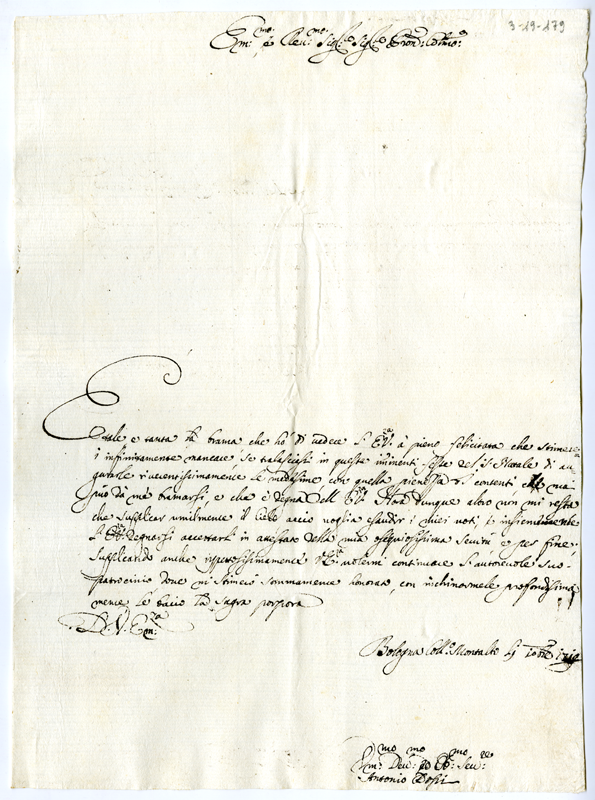 3-19-179
Em:mo e Reu:mo Sig:re Sig:re Pron: Colmo:
E tale e tanta la brama che hò di uedere l'E.V. à pieno felicitata che stimerei
i infinitamente mancare se tralasciassi in queste iminenti feste del S. Natale di au
gurarle riuerentissimamente le medesime con quella pienezza di contenti che mai
può da me bramarsi, e che è degna dell'E.V. Hora dunque altro non mi resta
che supplicar umilmente il Cielo accio uoglia esaudir i miei uoti, e insiememente
l'E.V. degnarsi accettarli in attestato della mia ossequiosissima seruitù e per fine
supplicando anche riuerentissimamente V.E. uolermi continuare l'autoreuole suo
patrocinio doue mi stimerò sommamente honorato, con inchinarmele profondissima
mente le bacio la sagra porpora
D. V. Em:za
Bologna Coll:o Montalto li
Hum:mo Deu:mo Ob:mo Seru:re
Antonio Dosi